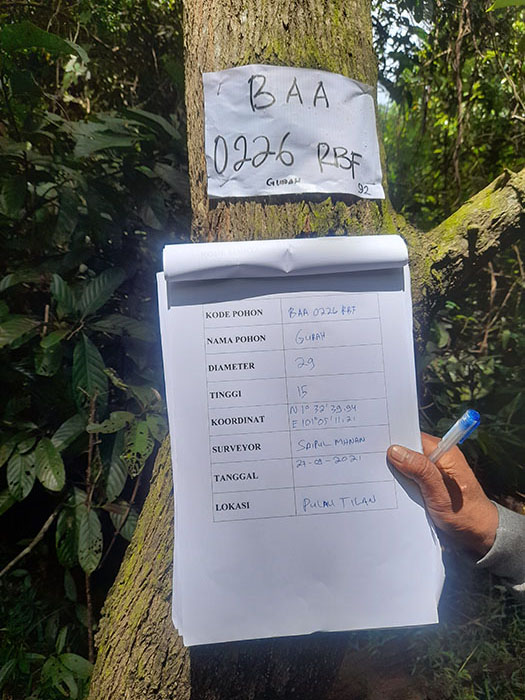 BAA
0226 RBF
GUBAH
92
KODE POHON BAA 0226 RBF
NAMA POHON GUBAH
DIAMETER 29
TINGGI 15
KOORDINAT N 1° 32' 39.94
E 101° 05' 11.21
SURVEYOR SAIPUL MANAN
TANGGAL 27-09-2021
LOKASI PULAU TILAN